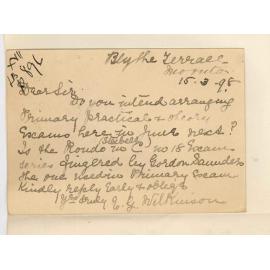 Blythe Terrace
15-3-98.
Dear Sir
Do you intend arranging
Primary practical & theory
Exams here in June next?
(Steibelt)
Is the Rondo in C no 18 Exam
series fingered by Gordon Saunders
the one used in Primary Exam
Kindly reply Early & oblige
Yrs truly E. G. Wilkinson